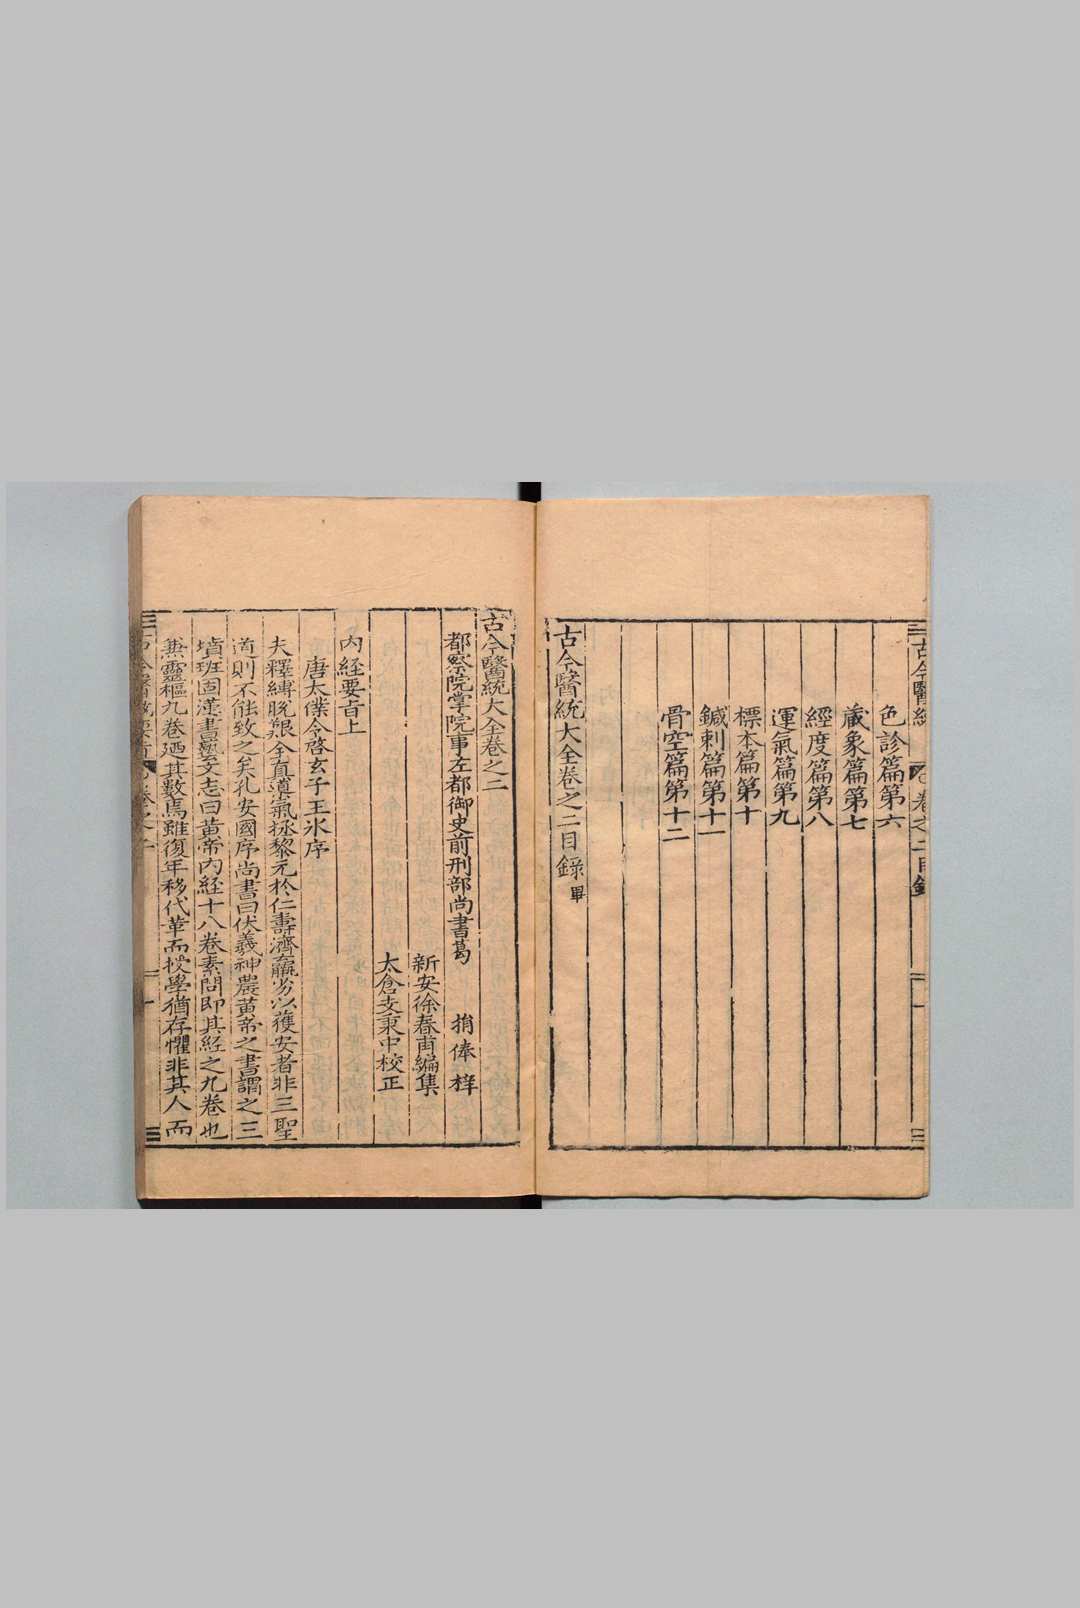 古今醫統
卷之二目錄
色診篇第六
蔵象篇第七
經度篇第八
運氣篇第九
標本篇第十
鍼刺篇第十一
骨空篇第十二
古今醫統大全卷之二目錄畢
古今醫統大全卷之二
都察院掌院事左都御史前刑部尚書葛 捐俸梓
新安徐春甫編集
太倉支秉中校正
内経要旨上
唐太僕令啓玄子王冰序
夫釋縛脫艱全真導氣拯黎元扵仁壽濟羸劣以獲安者非三聖
道則不能致之矣孔安國序尚書曰伏羲神農黄帝之書謂之三
墳班固漢書藝文志曰黃帝内経十八卷素問即其経之九卷也
兼靈樞九卷廼其數焉雖復年移代革而授學猶存懼非其人而